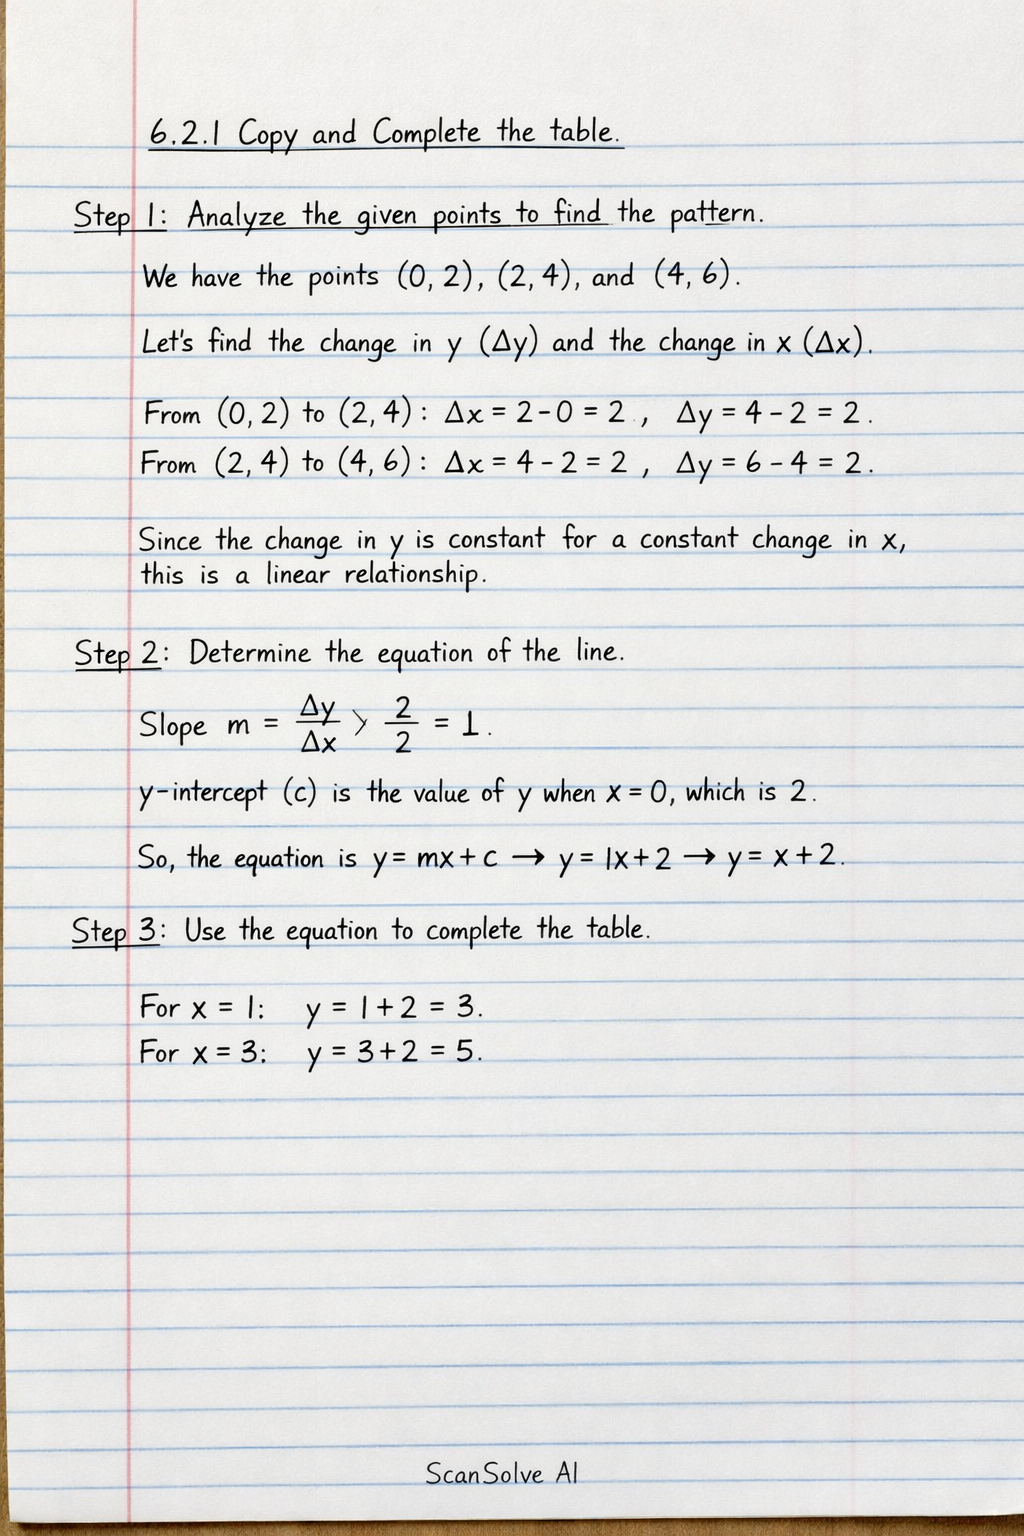 6.2.1 Copy and Complete the table.
Step 1: Analyze the given points to find the pattern.
We have the points (0, 2), (2, 4), and (4, 6).
Let's find the change in y (Δy) and the change in x (Δx).
From (0, 2) to (2, 4): Δx = 2 - 0 = 2, Δy = 4 - 2 = 2.
From (2, 4) to (4, 6): Δx = 4 - 2 = 2, Δy = 6 - 4 = 2.
Since the change in y is constant for a constant change in x,
this is a linear relationship.
Step 2: Determine the equation of the line.
Slope m = Δy/Δx > 2/2 = 1.
y-intercept (c) is the value of y when x = 0, which is 2.
So, the equation is y = mx + c → y = 1x + 2 → y = x + 2.
Step 3: Use the equation to complete the table.
For x = 1: y = 1 + 2 = 3.
For x = 3: y = 3 + 2 = 5.
ScanSolve AI